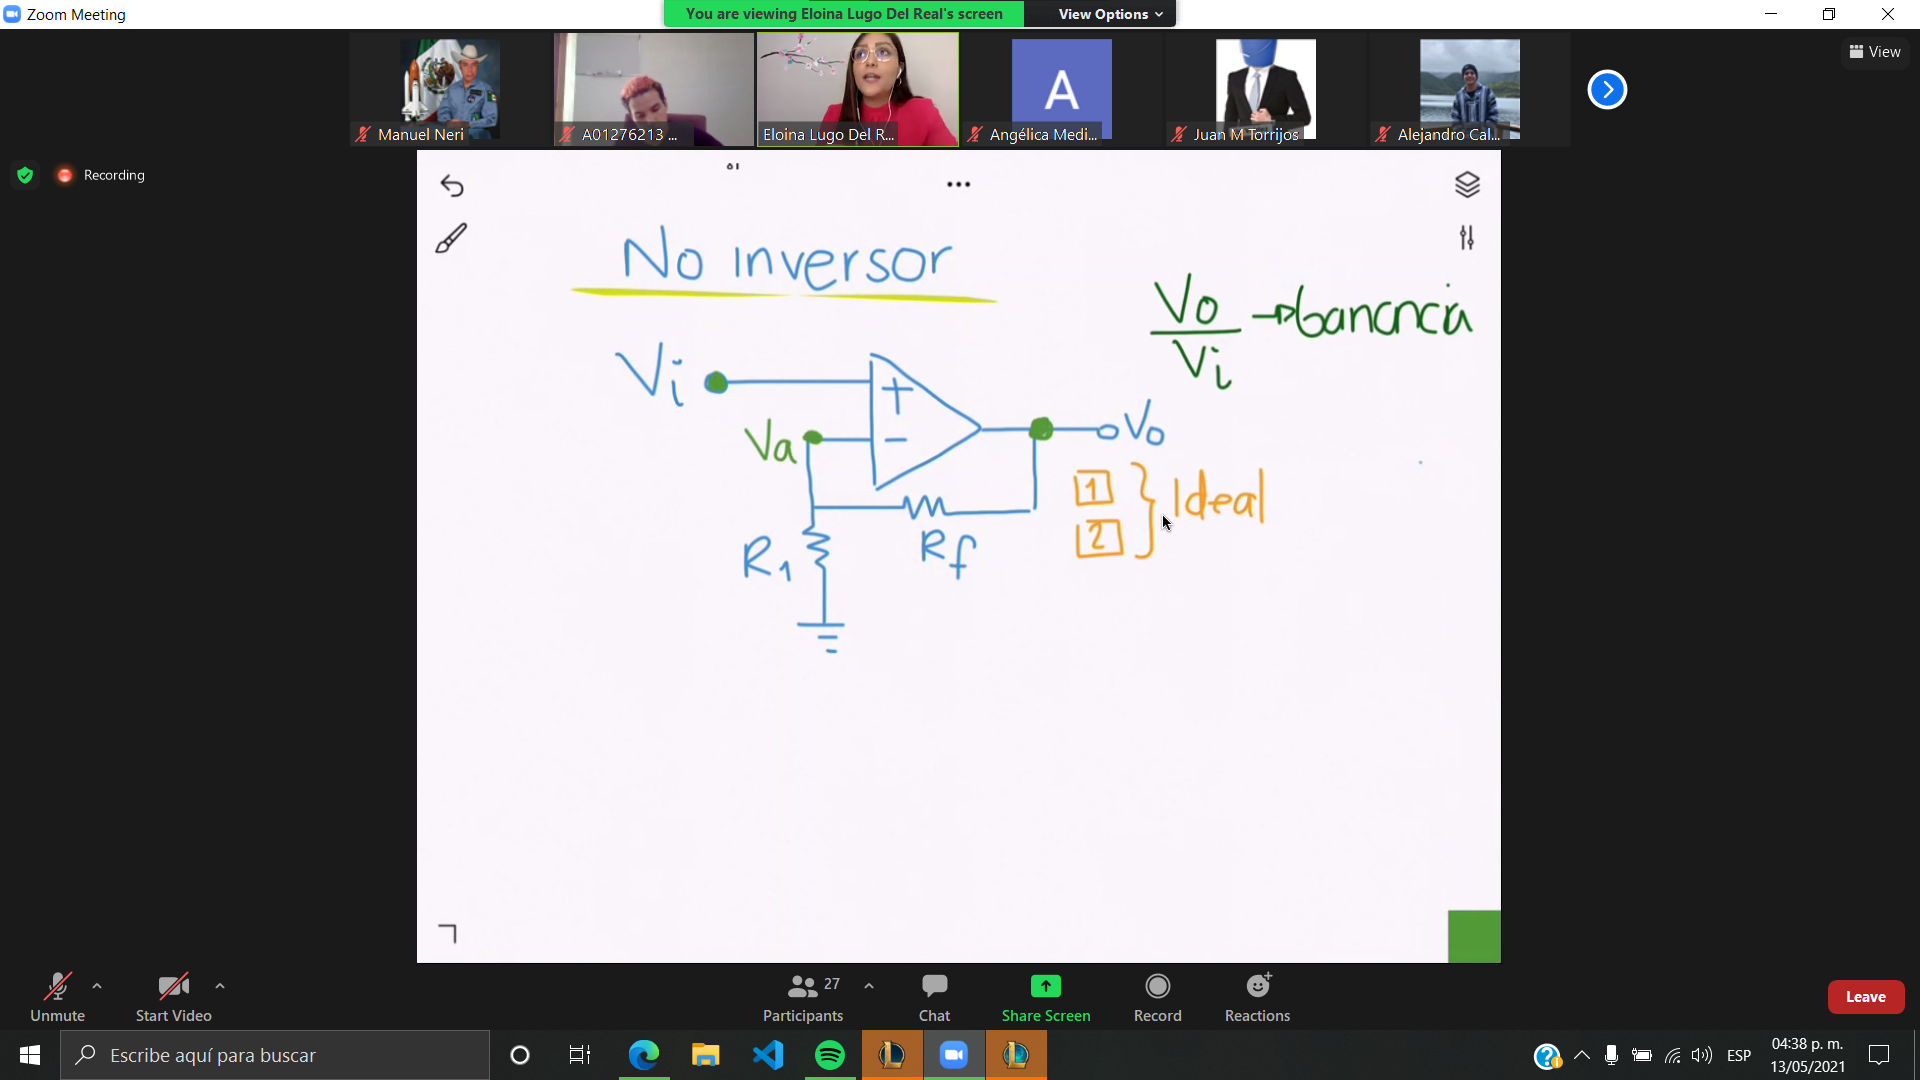 Zoom Meeting
You are viewing Eloina Lugo Del Real's screen
View Options
View
Manuel Neri
A01276213 ...
Eloina Lugo Del R...
A
Angélica Medi...
Juan M Torrijos
Alejandro Cal...
Recording
No inversor
Vo
Vi
Ganancia
Vi
+
Va
-
Vo
1
2
Ideal
R1
Rf
Unmute
Start Video
27
Participants
Chat
Share Screen
Record
Reactions
Leave
Escribe aquí para buscar
ESP
04:38 p. m.
13/05/2021